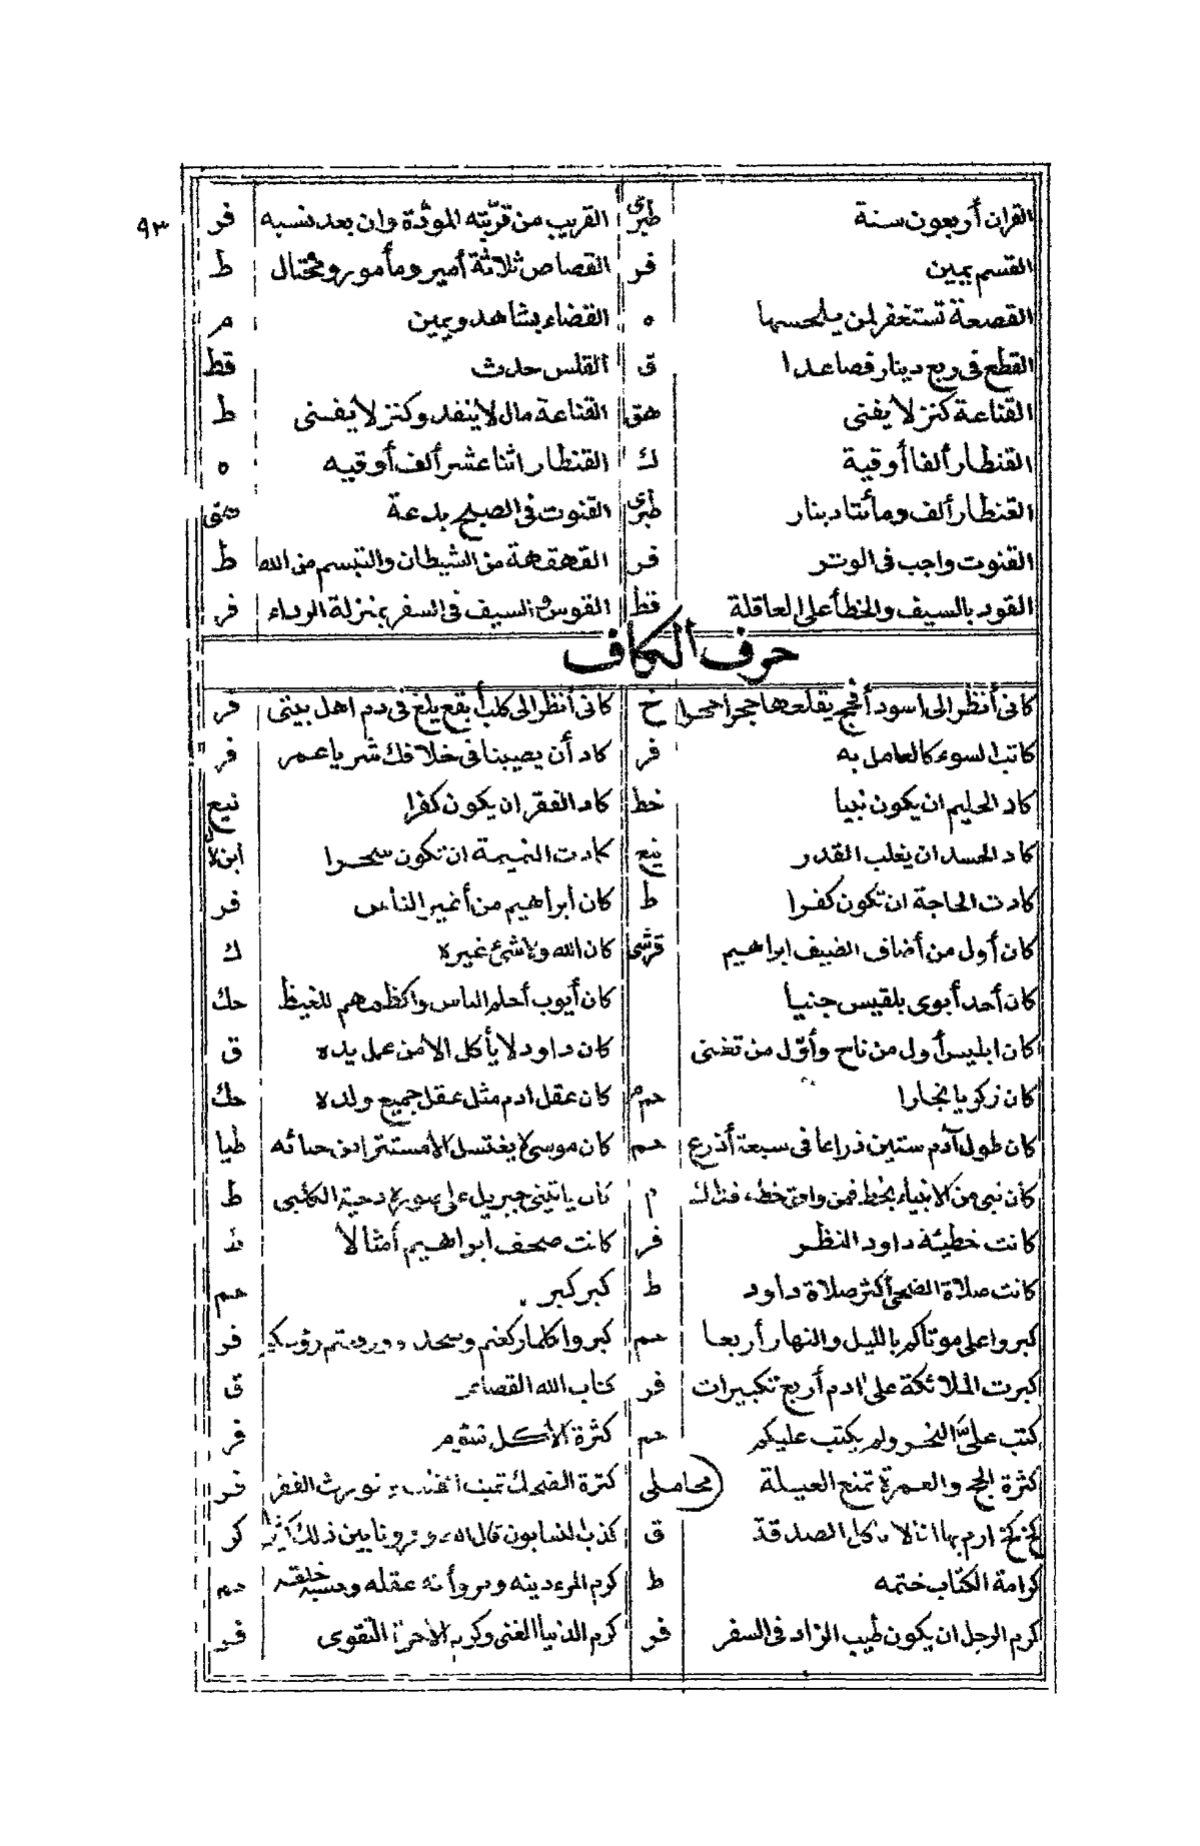 ٩٣
القران أربعون سنة طبرى القريب من قرّبته المودّة وان بعد نسبه فر
القسم يمين فر القصاص ثلاثة أمير ومأمور ومختال ط
القصعة تستغفر لمن يلحسها ه القضاء بشاهد ويمين م
القطع فى ربع دينار فصاعدا ق القلس حدث قط
القناعة كنز لا يفنى هق القناعة مال لا ينفد وكنز لا يفنى ط
القنطار ألفا أوقية ك القنطار اثنا عشر ألف أوقيه ه
القنطار ألف ومائتا دينار طبرى القنوت فى الصبح بدعة هق
القنوت واجب فى الوتر فر القهقهة من الشيطان والتبسم من الله ط
القود بالسيف والخطأ على العاقلة قط القوس والسيف فى السفر بمنزلة الرداء فر
حرف الكاف
كانى أنظر الى اسود أفحج يقلعها حجرا حجرا خ كانى أنظر الى كلب أبقع يلغ فى دم اهل بيتى فر
كاتب السوء كالعامل به فر كاد أن يصيبنا فى خلافك شر يا عمر فر
كاد الحليم ان يكون نبيا خط كاد الفقر ان يكون كفرا نيع
كاد الحسد ان يغلب القدر نيع كادت النميمة ان تكون سحرا ابن لال
كادت الحاجة ان تكون كفرا ط كان ابراهيم من أغير الناس فر
كان أول من أضاف الضيف ابراهيم قرشى كان الله ولا شئ غيره ك
كان أحد أبوى بلقيس جنيا كان أيوب أحلم الناس واكظمهم للغيظ حك
كان ابليس أول من ناح وأوّل من تغنى كان داود لا يأكل الا من عمل يده ق
كان زكريا نجارا حم م كان عقل ادم مثل عقل جميع ولده حك
كان طول آدم ستين ذراعا فى سبعة أذرع حم كان موسى لا يغتسل الا مستترا من حيائه طيا
كان نبى من الانبياء يخط فمن وافق خطه فذاك م كان ياتينى جبريل على صورة دحية الكلبى ط
كانت خطيئة داود النظر فر كانت صحف ابراهيم أمثالا
كانت صلاة الضحى أكثر صلاة داود ط كبر كبر حم
كبروا على موتاكم بالليل والنهار أربعا حم كبروا كلما ركعتم وسجدتم ورفعتم رؤسكم فر
كبرت الملائكة على ادم أربع تكبيرات فر كتاب الله القصاص ق
كتب علىّ النحر ولم يكتب عليكم حم كثرة الأكل شؤم فر
كثرة الحج والعمرة تمنع العيلة محاملى كثرة الضحك تميت القلب وتورث الفقر فر
كخ كخ ارم بها انا لا نأكل الصدقة ق كذب النسابون قال الله وقرونا بين ذلك كثيرا كر
كرامة الكتاب ختمه ط كرم المرء دينه ومروأته عقله وحسبه خلقه حم
كرم الرجل ان يكون طيب الزاد فى السفر فر كرم الدنيا الغنى وكرم الاخرة التقوى فر